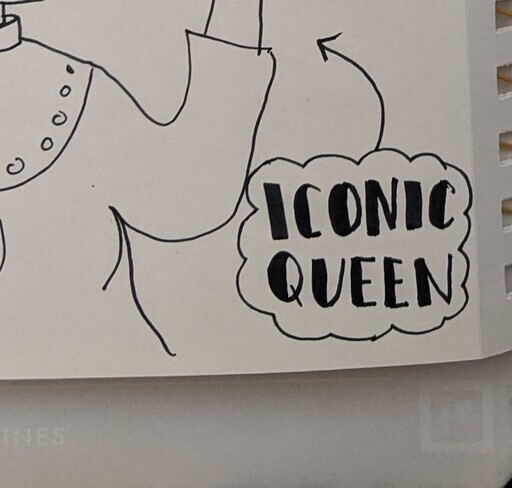 ICONIC
QUEEN
INES